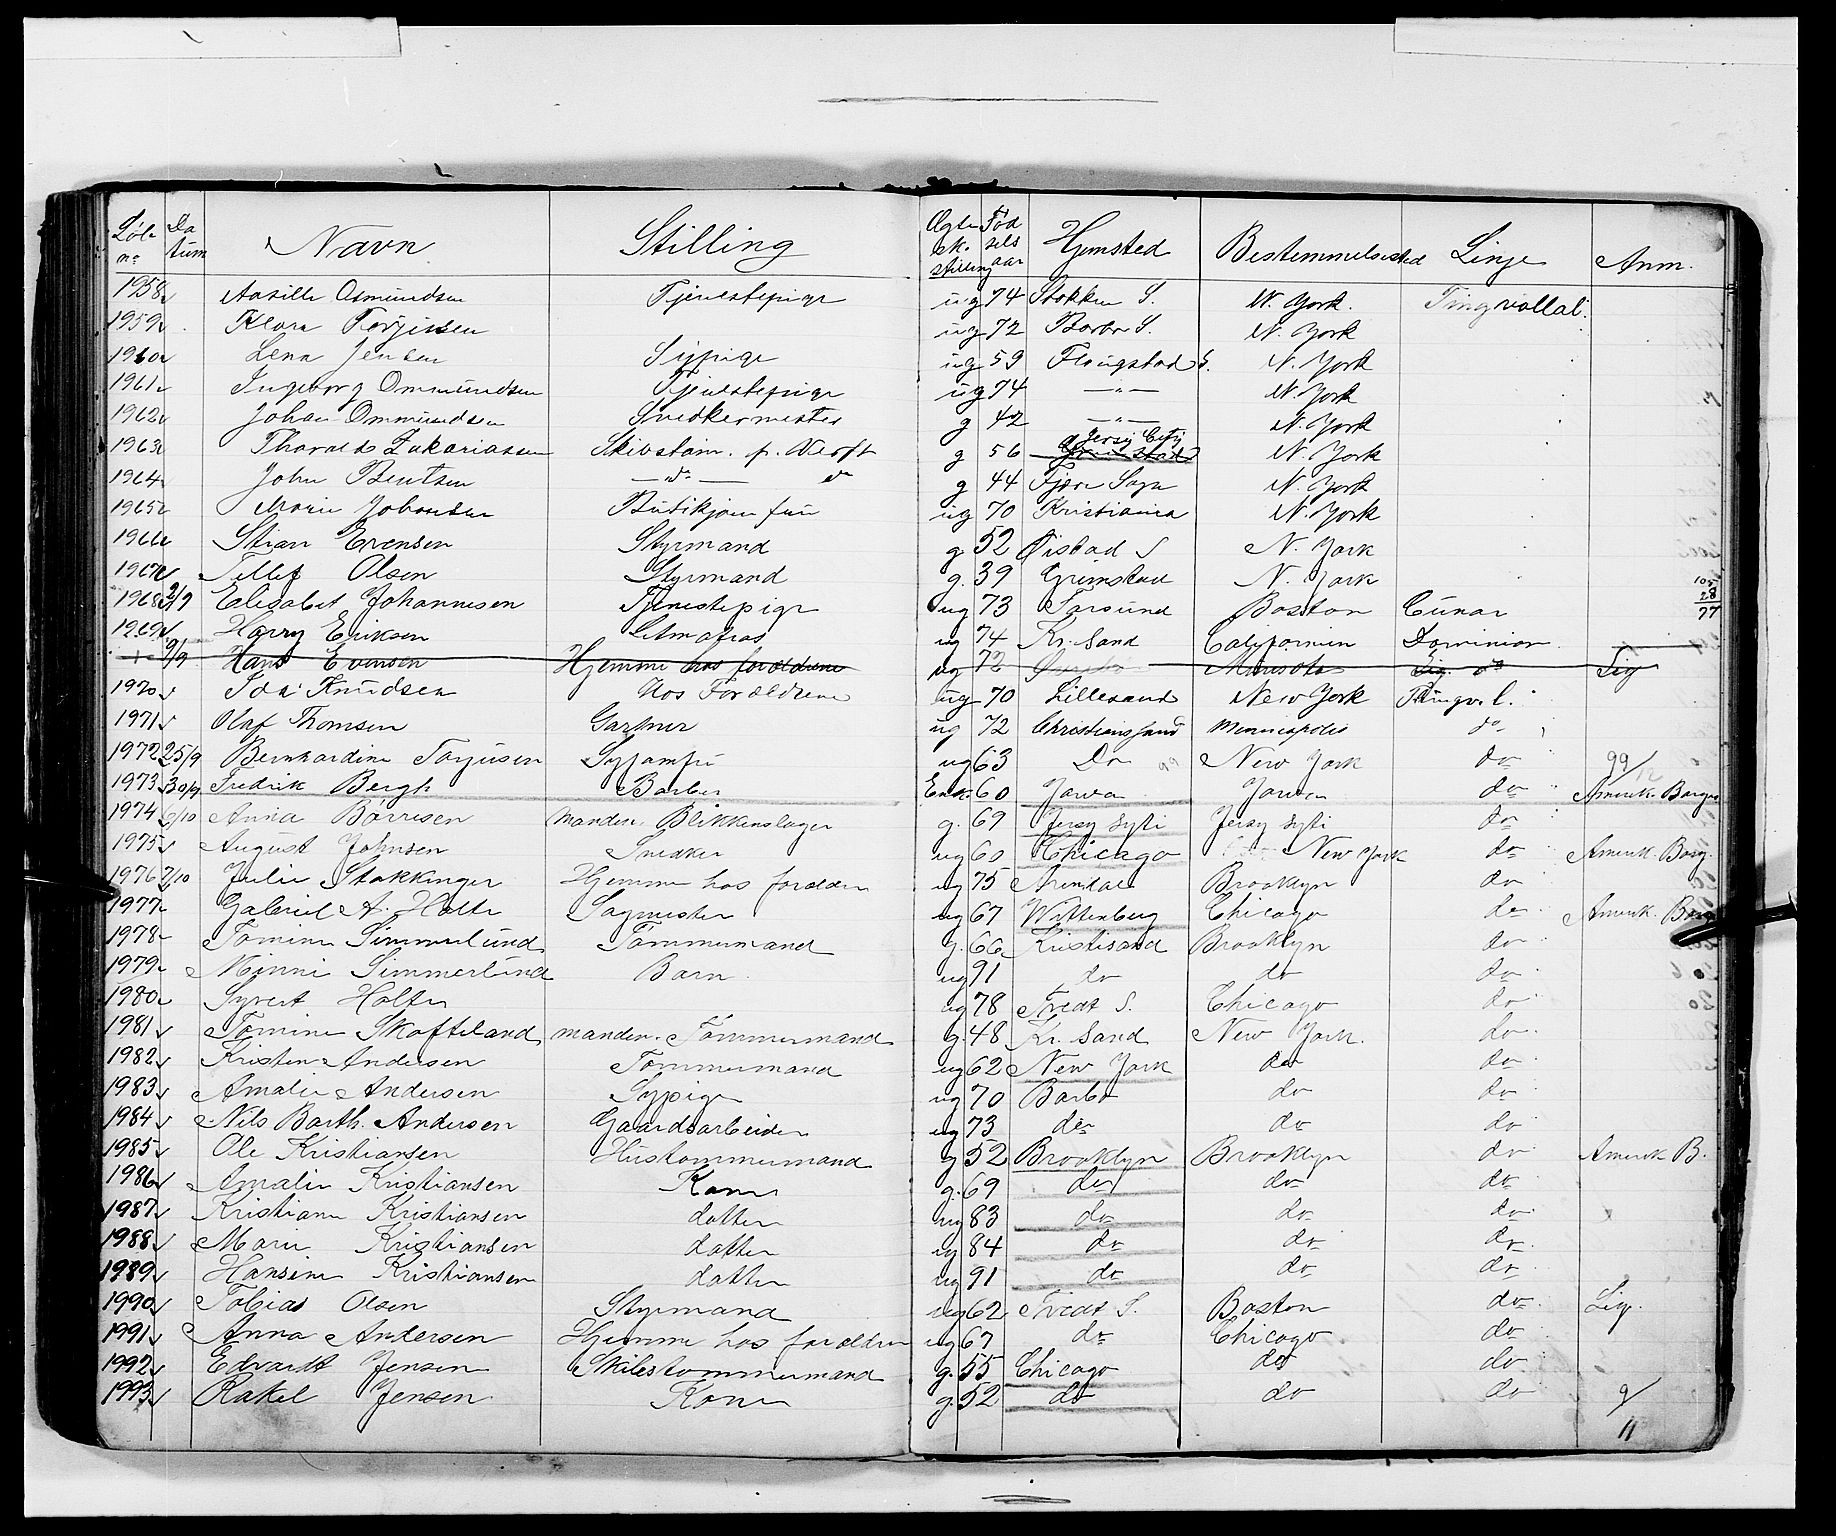 Løbe no Datum Navn Stilling Ægtesk. stilling Fødselsaar Hjemsted Bestemmelsested Linje Anm.
1958 Aasille Osmundsen Tjenestepige ug 74 Stokken S. N. York. Tingvallal.
1959 Klara Torjussen ug 72 Barbo S. N. York
1960 Lena Jensen Sypige ug 59 S. N. York
1961 Ingeborg Ommundsen Tjenestepige ug 74 — " — N. York
1962 Johan Ommundsen Snedkermester g 42 — " — N. York
1963 Tharald Zakariassen Skibstøm. p. Verft g 56 Jersy City N. York
1964 John Bentsen — do — do g 44 Fjære Sogn N. York
1965 Marie Johansen Butikjomfru ug 70 Kristiania N. York
1966 Stian Evensen Styrmand g 52 Øistad S N. York
1967 Tellef Olsen Styrmand g. 39 Grimstad N. York
1968 2/9 Elisabet Johannesen Tjenestepige ug 73 Farsund Boston Cunar
1969 Harry Eriksen Letmatros ug 74 Kr. Sand Californien Dominion
9/9 Hans Evensen Hjemme hos forældrene ug 72 Minisota Lig. do Lig
1970 Ida Knudsen Hos Forældrene ug 70 Lillesand New York Tingv. l.
1971 Olaf Thomsen Gartner ug 72 Christianssand Minneapolis do
1972 25/9 Bernhardine Torjusen Syjomfru ug 63 Do New York do 99/12
1973 30/9 Fredrik Bergh Barber Enk. 60 Jowa Jowa do Amerik. Borger
1974 2/10 Anna Børresen manden. Blikkenslager g. 69 Jersy Syti Jersy Syti do
1975 August Johnsen Snedker ug 60 Chicago New York do Amerik. Borg.
1976 7/10 Julie Stakkinger Hjemme hos foraldre ug 75 Arendal Brooklyn do
1977 Gabriel A. Holte Sagmester ug 67 Wittenberg Chicago do Amerik. Borg
1978 Tomine Simmerlund Tømmermand g. 66 Kristisand Brooklyn do
1979 Minni Simmerlund Barn. ug 91 do do do
1980 Syvert Holte ug 78 Tvedt S. Chicago do
1981 Tomine Skofteland manden. Tømmermand g. 48 Kr. Sand New York. do
1982 Kristen Andersen Tømmermand ug 62 New York do do
1983 Amalie Andersen Sypige ug 70 Barbo do do
1984 Nils Barth. Andersen Gaardsarbeider ug 73 do do do
1985 Ole Kristiansen Hustømmermand g 52 Brooklyn Brooklyn do Amerik B.
1986 Amalie Kristiansen Kone g. 69 do do do
1987 Kristiane Kristiansen datter ug 83 do do do
1988 Marie Kristiansen datter ug 84 do do do
1989 Hansine Kristiansen datter ug 91 do do do
1990 Tobias Olsen Styrmand ug 62 Tvedt S. Boston do Lig.
1991 Anna Andersen Hjemme hos foraldre ug 67 do Chicago do
1992 Edvardt Jensen Skibstømmermand g. 55 Chicago do do
1993 Rakel Jensen Kone g. 52 do do do 9/11